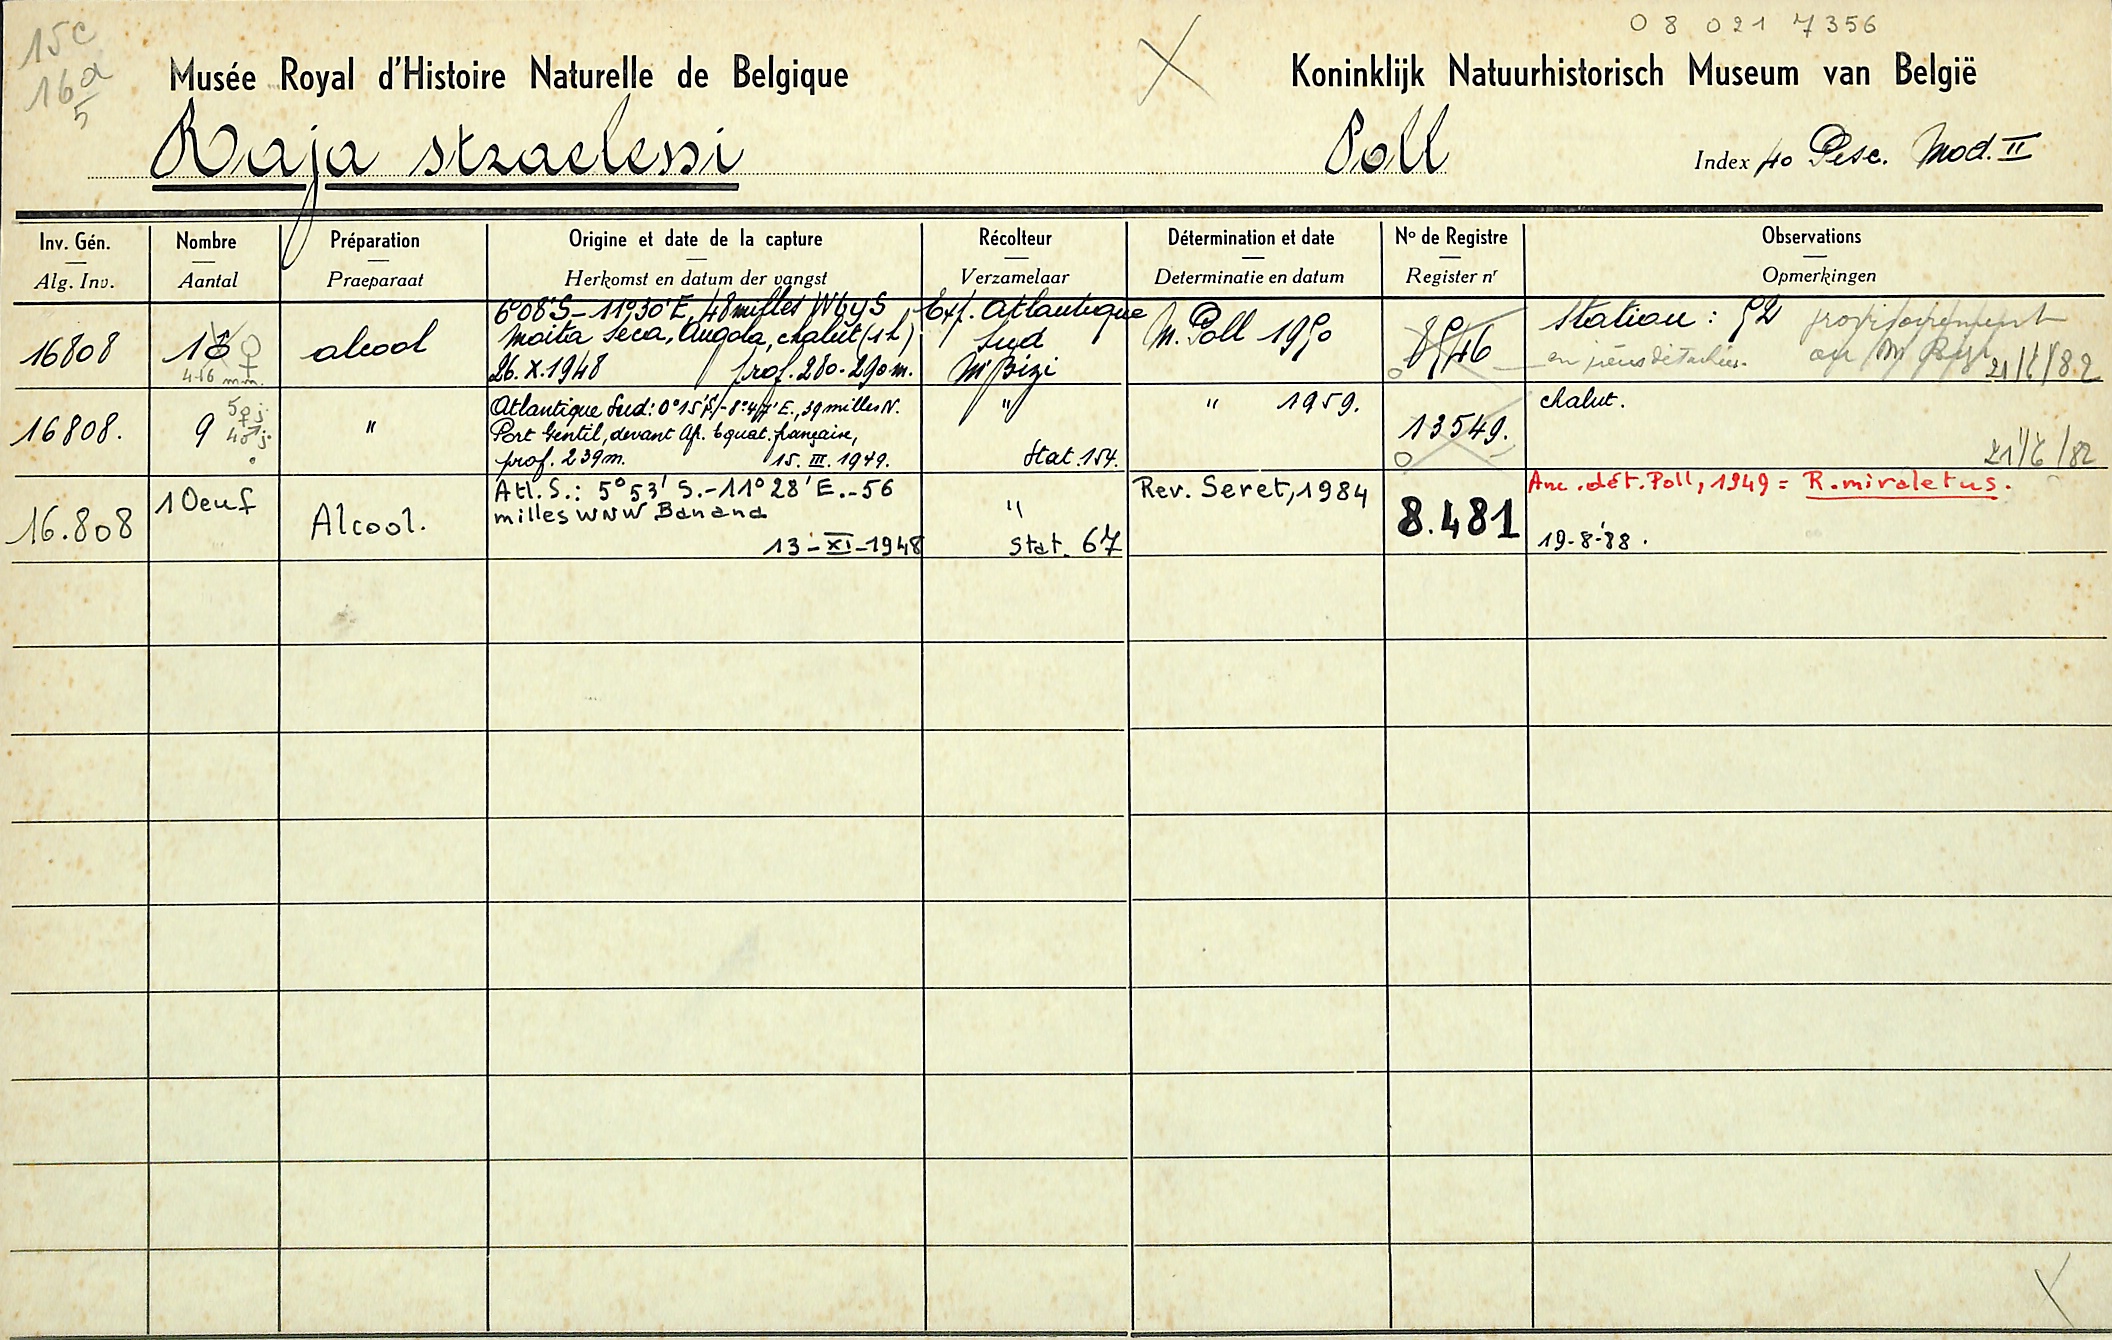 15c
16a
5
08 021 7356
Musée Royal d'Histoire Naturelle de Belgique
Koninklijk Natuurhistorisch Museum van België
Raja straeleni Poll
Index 40 Pisc. Mod. II
Inv. Gén. Nombre Préparation Origine et date de la capture Récolteur Détermination et date No de Registre Observations
Alg. Inv. Aantal Praeparaat Herkomst en datum der vangst Verzamelaar Determinatie en datum Register nr Opmerkingen
16808
1 ♀
416 m.m.
alcool
6°08'S - 11°30'E, 48 milles WbyS
Moita Seca, Angola, chalut (1h)
26.X.1948 prof. 280-290 m.
Exp. Atlantique
Sud
M'Bizi
M. Poll 1950
8546
Station: 52 provisoirement
en pièces détachées.
21/6/82
16808.
9
5♀j.
4♂j.
"
Atlantique Sud: 0°15'S - 8°47'E., 39 milles N.
Port Gentil, devant Af. Equat. française,
prof. 239m. 15.III.1949.
"
Stat. 154.
" 1959.
13549.
chalut.
21/6/82
16.808
1 Oeuf
Alcool.
Atl. S.: 5°53' S.-11°28'E.-56
milles WNW Banana
13-XI-1948
"
Stat. 67
Rev. Seret, 1984
8.481
Anc. dét. Poll, 1949 = R. miraletus.
19-8-88.